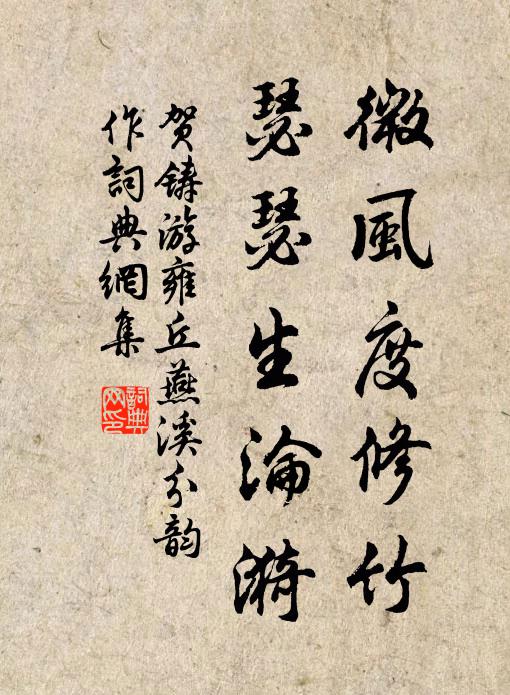 微風度修竹
瑟瑟生淪漪
贺鑄游雍丘燕溪分韵
作詞典網集
詞典
网印